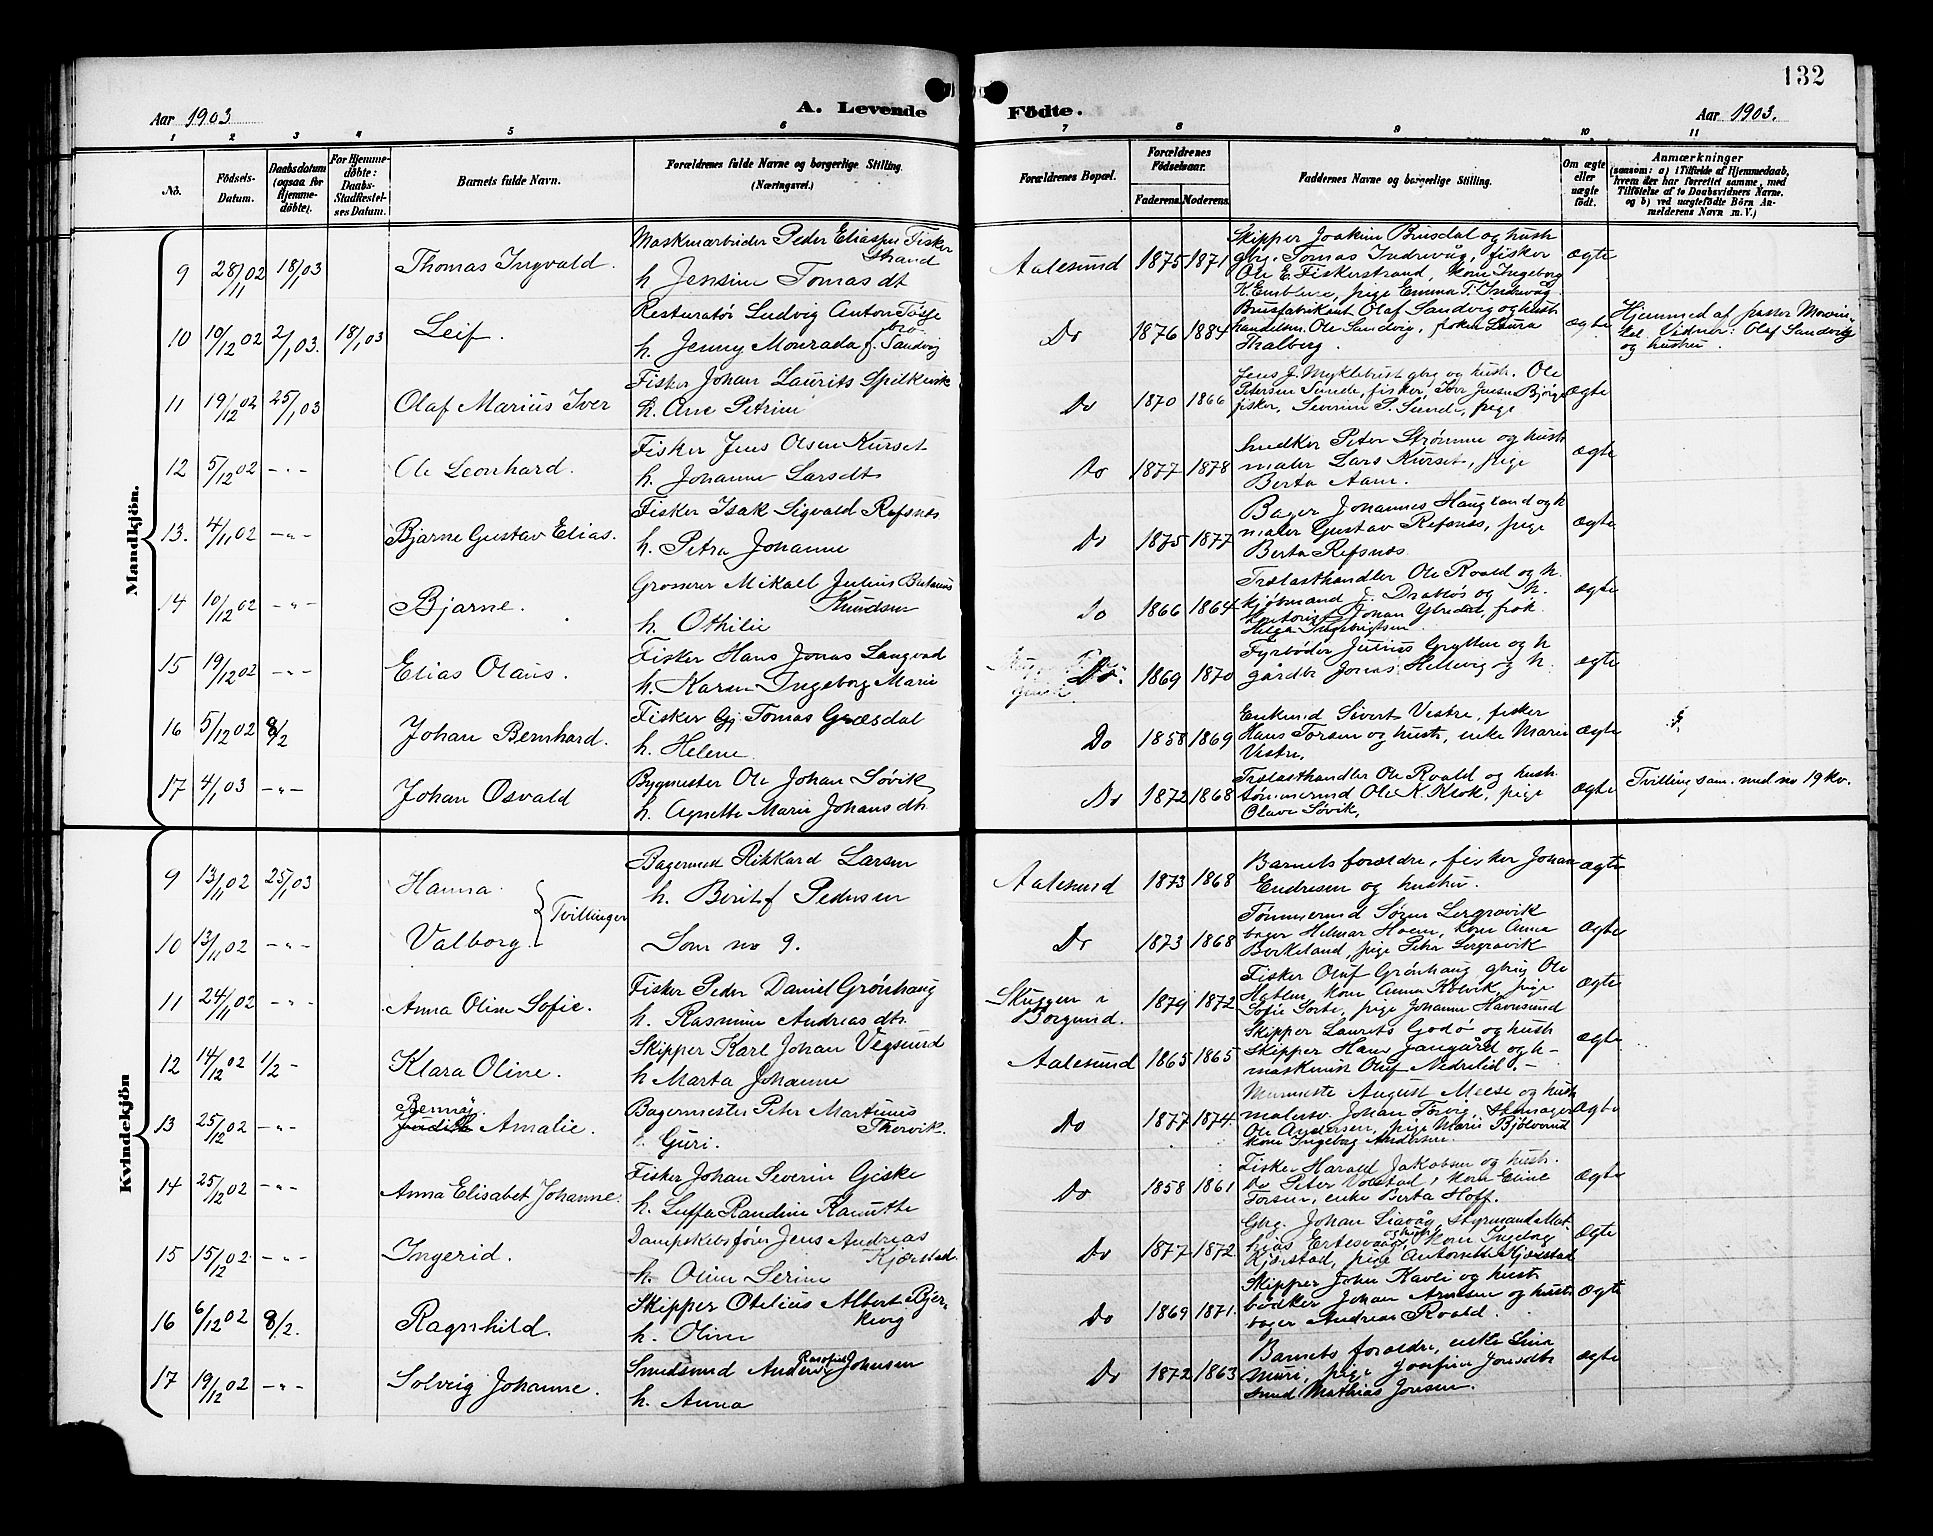 132
Aar 1903
A. Levende
Födte.
Aar 1903.
1 2 3 4 5 6 7 8 9 10 11
No.
Födsels-
Datum.
Daabsdatum
(ogsaa for
Hjemme-
døbte).
For Hjemme-
døbte:
Daabs-
Stadfæstel-
ses Datum.
Barnets fulde Navn.
Forældrenes fulde Navne og borgerlige Stilling.
(Næringsvei.)
Forældrenes Bopæl.
Forældrenes
Födselsaar.
Faderens.
Moderens.
Faddernes Navne og borgerlige Stilling.
Om ægte
eller
uægte
født.
Anmærkninger
(saasom: a) i Tilfælde af Hjemmedaab,
hvem der har forrettet samme, med
Tilføielse af to Daabsvidners Navne,
og b) ved uægtefødte Börn An-
melderens Navn m. V.)
Mandkjön.
9 28/11 02 18/1 03
Thomas Ingvald.
Maskinarbeider Peder Eliassen Fisker
strand
h. Jensine Tomasdt
Aalesund 1875 1871
Skipper Joakim Brusdal og hust
gbr. Tomas Indrevåg, fisker
Ole E. Fiskerstrand, kone Ingeborg
K. Emblem, pige Emma T. Indrevåg.
ægte
10 10/12 02 2/1 03. 18/1 03
Leif.
Resturatør Ludvig Anton Tosse
bro
h. Jenny Monrada f. Sandvig
Do 1876 1884
Brusfabrikant Olaf Sandvig og hust
handelsm. Ole Sandvig, frøken Laura
Thalberg.
ægte
Hjemmed af pastor Movin-
kel. Vidner: Olaf Sandvig
og hustru.
11 19/12 02 25/1 03
Olaf Marius Iver
Fisker Johan Laurits Spilkevik
h. Ane Petrine
Do 1870 1866
Jens J. Myklebust gbrg og hust. Ole
Petersen Sunde, fisker, Iver Jensen Bjørge
fisker, Severine P. Sunde, pige
ægte
12 5/12 02 -"-
Ole Leonhard.
Fisker Jens Olsen Kurset
h. Johanne Larsdt
Do 1877 1878
Snedker Peter Strømme og hust
maler Lars Kurset, pige
Berta Aam.
ægte
13. 4/11 02 -"-
Bjarne Gustav Elias.
Fisker Isak Sigvald Refsnes.
h. Petra Johanne
Do 1875 1877
Bager Johannes Haugland og h
maler Gustav Refsnes, pige
Berta Refsnes.
ægte
14 10/12 02 -"-
Bjarne.
Grosserer Mikael Julius
Knudsen
h. Othilie
Do 1866 1864
Trælasthandler Ole Roald og h.
kjøbmand J. Drabløs og h.
kontorist Johan, frøk.
Helga Ingebrigtsen
ægte
15 19/12 02 -"-
Elias Olaus.
Fisker Hans Jonas Langvad
h. Karen Ingeborg Marie
Do. 1869 1870
Fyrbøder Julius Grytten og h
gårdbr Jonas Hellevig og h.
ægte
16 5/12 02 8/2
Johan Bernhard.
Fisker Gj. Tomas Græsdal
h. Helene
Do 1858 1869
Enkemd Sivert Vestre, fisker
Hans Torsen og hustr, enke Marie
Vestre,
ægte
17 4/1 03 -"-
Johan Osvald
Bygmester Ole Johan Søvik,
h. Agnette Marie Johansdt.
Do 1872 1868
Trælasthandler Ole Roald og hust.
tømmermd Ole K. Klok, pige
Olave Søvik,
ægte
Tvilling sam. med no 19 kv.
Kvindekjön
9 13/11 02 25/1 03
Hanna.
Tvillinger
Bagermed Rikkard Larsen
h. Berit f Pedersen
Aalesund 1873 1868
Barnets forældre, fisker Johan
Endresen og hustru.
ægte
10 13/11 02 -"-
Valborg.
Som no 9.
Do 1873 1868
Tømmermd Søren Lergravik
bager Helmar Hoem, kone Anna
Berkeland, pige Petra Lergravik
ægte
11 24/11 02 -"-
Anna Oline Sofie.
Fisker Peder Daniel Grønhaug
h. Rasmine Andreasdt.
Skuggen i
Borgund.
1879 1872
Fisker Oluf Grønhaug, gbrg Ole
kone Anna Kolvik, pige
Sofie Sorte, pige Johanne Havnsund
ægte
12 14/12 02 1/2 -
Klara Oline.
Skipper Karl Johan Vegsund
h Marta Johanne
Aalesund 1865 1865
Skipper Laurits Godø og hust
skipper Hans Jangård og h-
maskinist Oluf Nedrelid. -
ægte
13 25/12 02 -"-
Bennøy.
Judith Amalie.
Bagermester Peter Martinus
Thorvik.
h. Guri.
Do 1877 1874.
Murmeste August Meese og hust
malersv. Johan Torvig, skomager
Ole Andersen, pige Marie Bjølverud
kone Ingeborg Andersen.
ægte
14 25/12 02 -"-
Anna Elisabet Johanne.
Fisker Johan Severin Giske
h. Luffa Randine Kanutte
Do 1858 1861
Fisker Harald Jakobsen og hust.
Do Peter Volstad, kone Eline
Torsen, enke Berta Hoff.
ægte
15 15/12 02 -"-
Ingerid.
Dampskibsfører Jens Andreas
Kjørstad.
h. Oline Serine
Do 1877 1872
Gbrg. Johan Liavåg, styrmand Mat
hias Ertesvaag og hust kone Ingeborg
Kjørstad, pige Antonette Kjørstad
ægte
16 6/12 02 8/2.
Ragnhild.
Skipper Otelius Albert Bjer-
kevig
h. Oline
Do 1869 1871.
Skipper John Kavli og hust
bødker Johan Arnesen og hust
bager Andreas Roald.
ægte
17 19/12 02 -"-
Solveig Johanne.
Smedsvend Anders Rasofius Johnsen
h. Anna
Do 1872 1863
Barnets forældre, enke Lina
Muri, pige Josefine Jonsdt.
smed Mathias Jonsen.
ægte